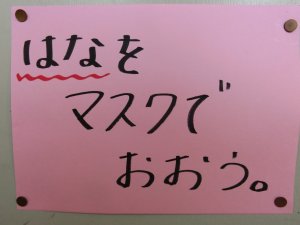 はなを
マスクで
おおう。